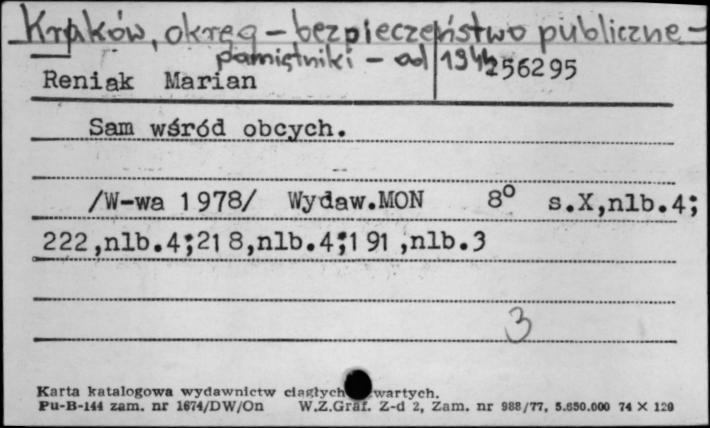 Kraków, okręg – bezpieczeństwo publiczne –
pamiętniki – od 1944
Reniak Marian 256295
Sam wśród obcych.
/W-wa 1978/ Wydaw.MON 8° s.X,nlb.4;
222,nlb.4;218,nlb.4;191,nlb.3
3
Karta katalogowa wydawnictw ciągłych wartych.
Pu-B-144 zam. nr 1674/DW/On W.Z.Graf. Z-d 2, Zam. nr 988/77, 5.650.000 74 X 120